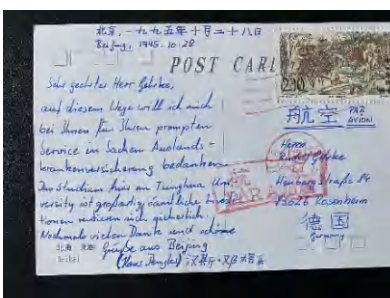 北京,一九九五年十月二十八日
Beijing, 1995.10.28
POST CARD
Sehr geehrter Herr
auf diesem Wege will ich mich
bei Ihnen für Ihren prompten
Service in Sachen Auslands=
krankenversicherung bedanken.
Das Studium hier an Tsinghua Uni-
versity ist großartig, sämtliche
rentieren sich sicherlich.
Nochmals vielen Danke und schöne
Grüße aus Beijing
230
航空 PAR AVION
Herrn
83026 Rosenheim
德国
Germany